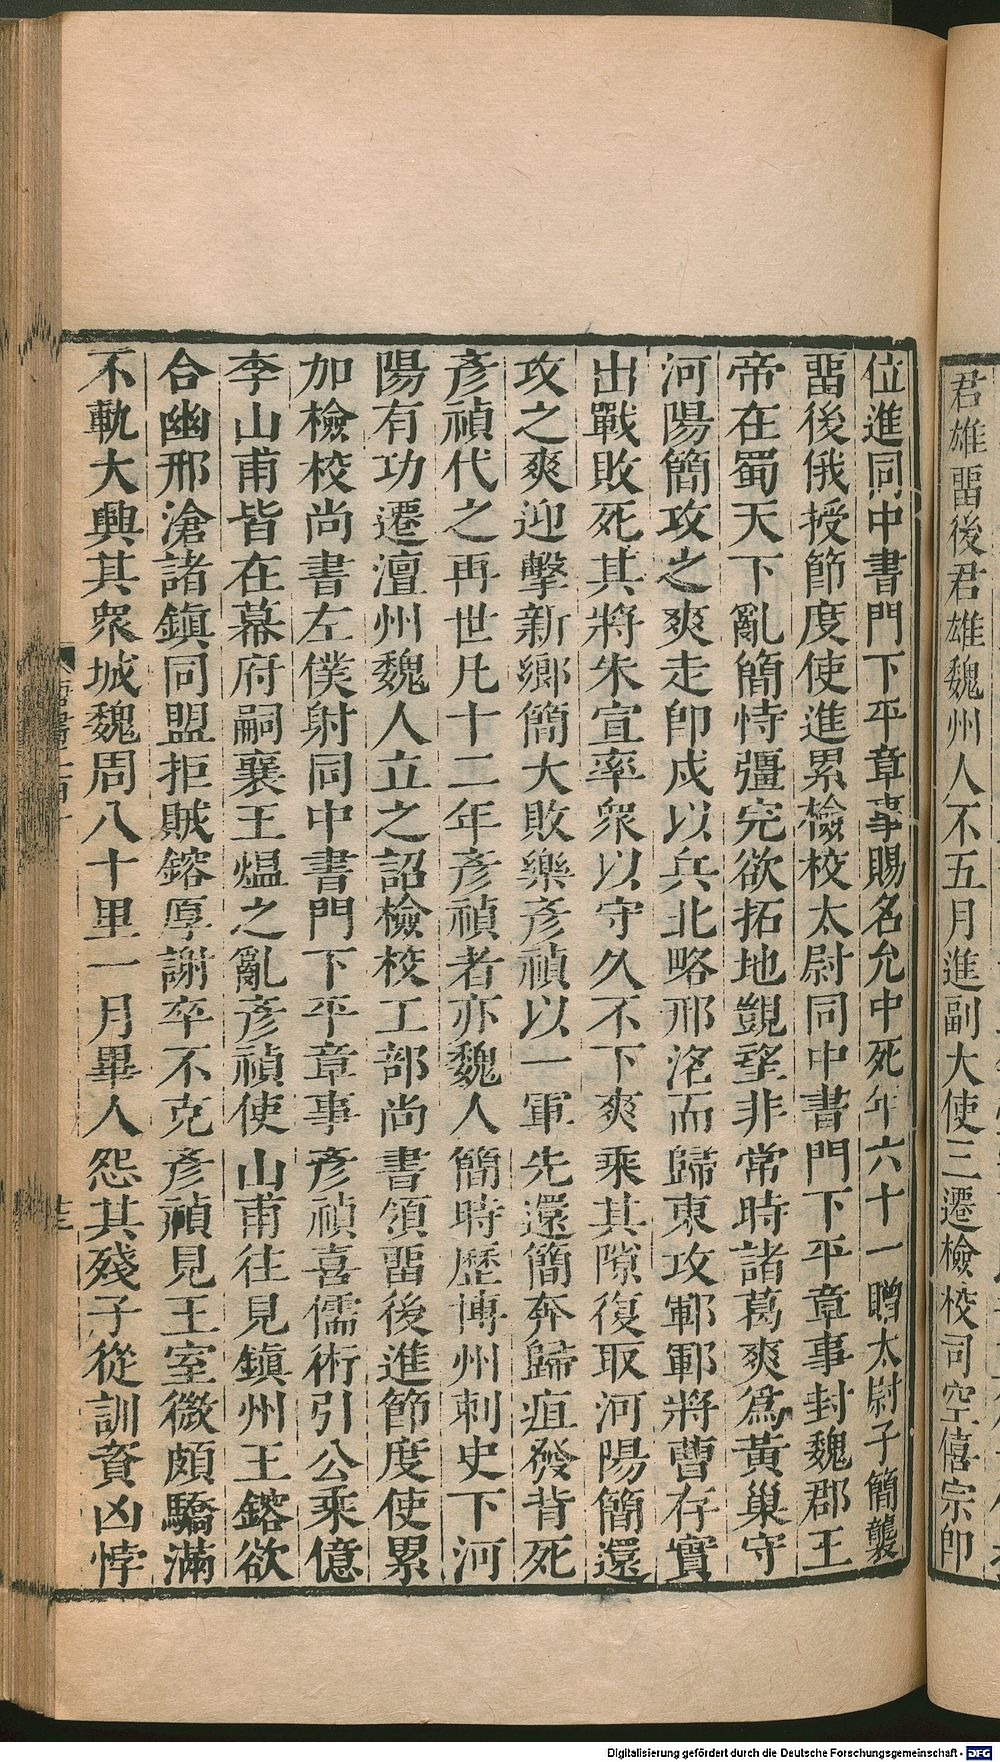 君雄畱後君雄魏州人不五月進副大使三遷檢校司空僖宗即
位進同中書門下平章事賜名允中死年六十一贈太尉子簡襲
畱後俄授節度使進累檢校太尉同中書門下平章事封魏郡王
帝在蜀天下亂簡恃彊完欲拓地覬望非常時諸葛爽爲黃巢守
河陽簡攻之爽走卽戍以兵北略邢洺而歸東攻鄆鄆將曹存實
出戰敗死其將朱宣率衆以守久不下爽乘其隙復取河陽簡還
攻之爽迎擊新鄉簡大敗樂彥禎以一軍先還簡奔歸疽發背死
彥禎代之再世凡十二年彥禎者亦魏人簡時歷博州刺史下河
陽有功遷澶州魏人立之詔檢校工部尚書領畱後進節度使累
加檢校尚書左僕射同中書門下平章事彥禎喜儒術引公乘億
李山甫皆在幕府嗣襄王熅之亂彥禎使山甫往見鎮州王鎔欲
合幽邢滄諸鎮同盟拒賊鎔厚謝卒不克彥禎見王室微頗驕滿
不軌大興其衆城魏周八十里一月畢人怨其殘子從訓資凶悖
Digitalisierung gefördert durch die Deutsche Forschungsgemeinschaft - DFG